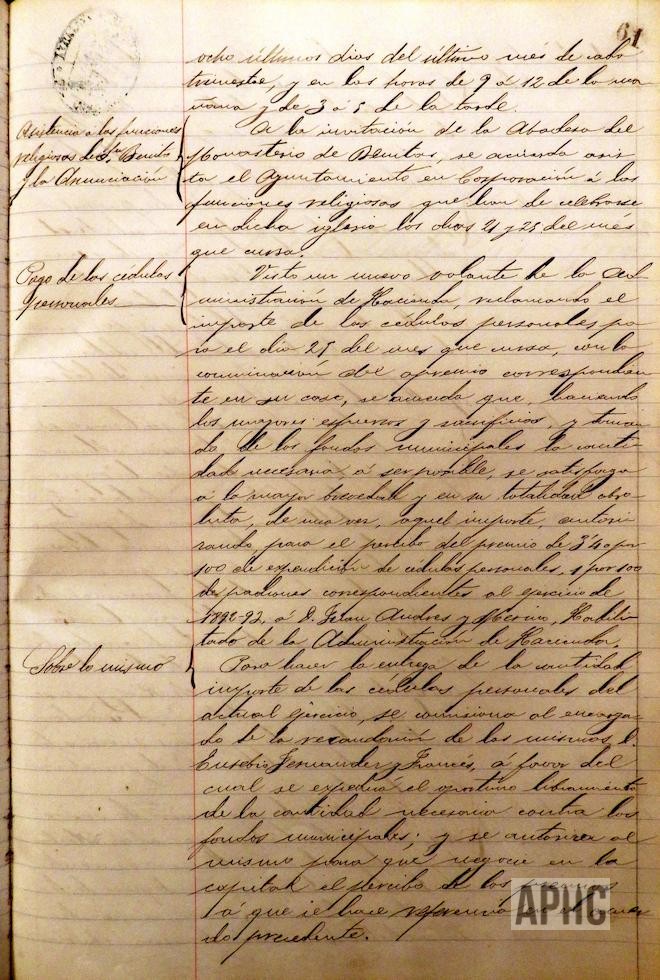 61
ocho últimos dias del último més de cada
trimestre, y en las horas de 9 á 12 de la ma
ñana y de 3 á 5 de la tarde.
Asistencia a las funciones
religiosas de Sn. Benito
y la Anunciación
A la invitación de la Abadesa del
Monasterio de Benitas, se acuerda asis
ta el Ayuntamiento en Corporación á las
funciones religiosas que han de celebrarse
en dicha iglesia los dias 21 y 25 del més
que cursa.
Pago de las cédulas
personales
Visto un nuevo volante de la Ad
ministración de Hacienda, reclamando el
importe de las cédulas personales pa
ra el dia 25 del mes que cursa, con la
conminación del apremio correspondien
te en su caso, se acuerda que, haciendo
los mayores esfuerzos y sacrificios, y toman
do de los fondos municipales la canti
dad necesaria, á ser posible, se satisfaga
á la mayor brevedad y en su totalidad abso
luta, de una vez, aquel importe, autori
zando para el percibo del premio de 3'40 por
100 de expendición de cédulas personales, 1 por 100
de padrones correspondientes al ejercicio de
1892-93, á D. Juan Andres y Merino, Habili
tado de la Administración de Hacienda.
Sobre lo mismo
Para hacer la entrega de la cantidad
importe de las cédulas personales del
actual ejercicio, se comisiona al encarga
do de la recaudación de las mismas, D.
Eusebio Fernandez y Francés, á favor del
cual se expedirá el oportuno libramiento
de la cantidad necesaria contra los
fondos municipales; y se autoriza al
mismo para que negocie en la
capital el percibo de los premios
á que se hace referencia en el acuer
do precedente.
APHC